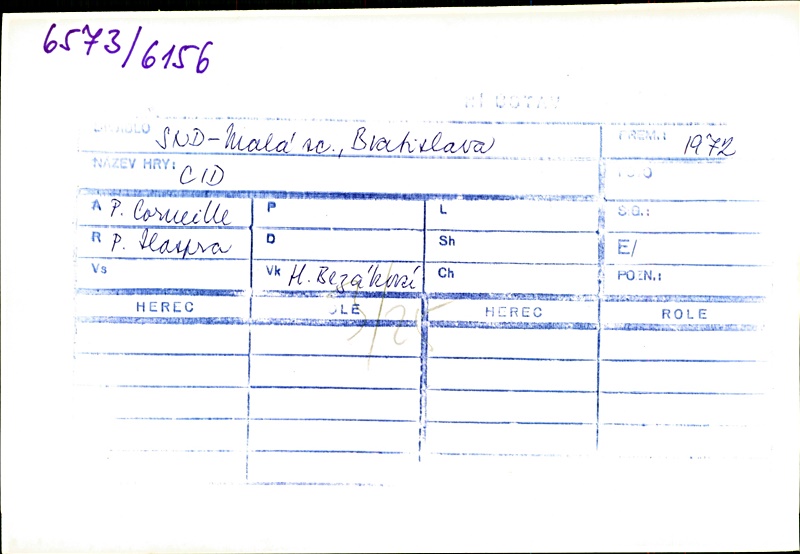 6573/6156
NÍ ÚSTAV
DIVADLO SND-Malá sc., Bratislava PREM.: 1972
NÁZEV HRY: CID
A P. Corneille P L S.G.:
R P. Haspra D Sh E/
Vs Vk H. Bezáková Ch POZN.:
HEREC ROLE HEREC ROLE